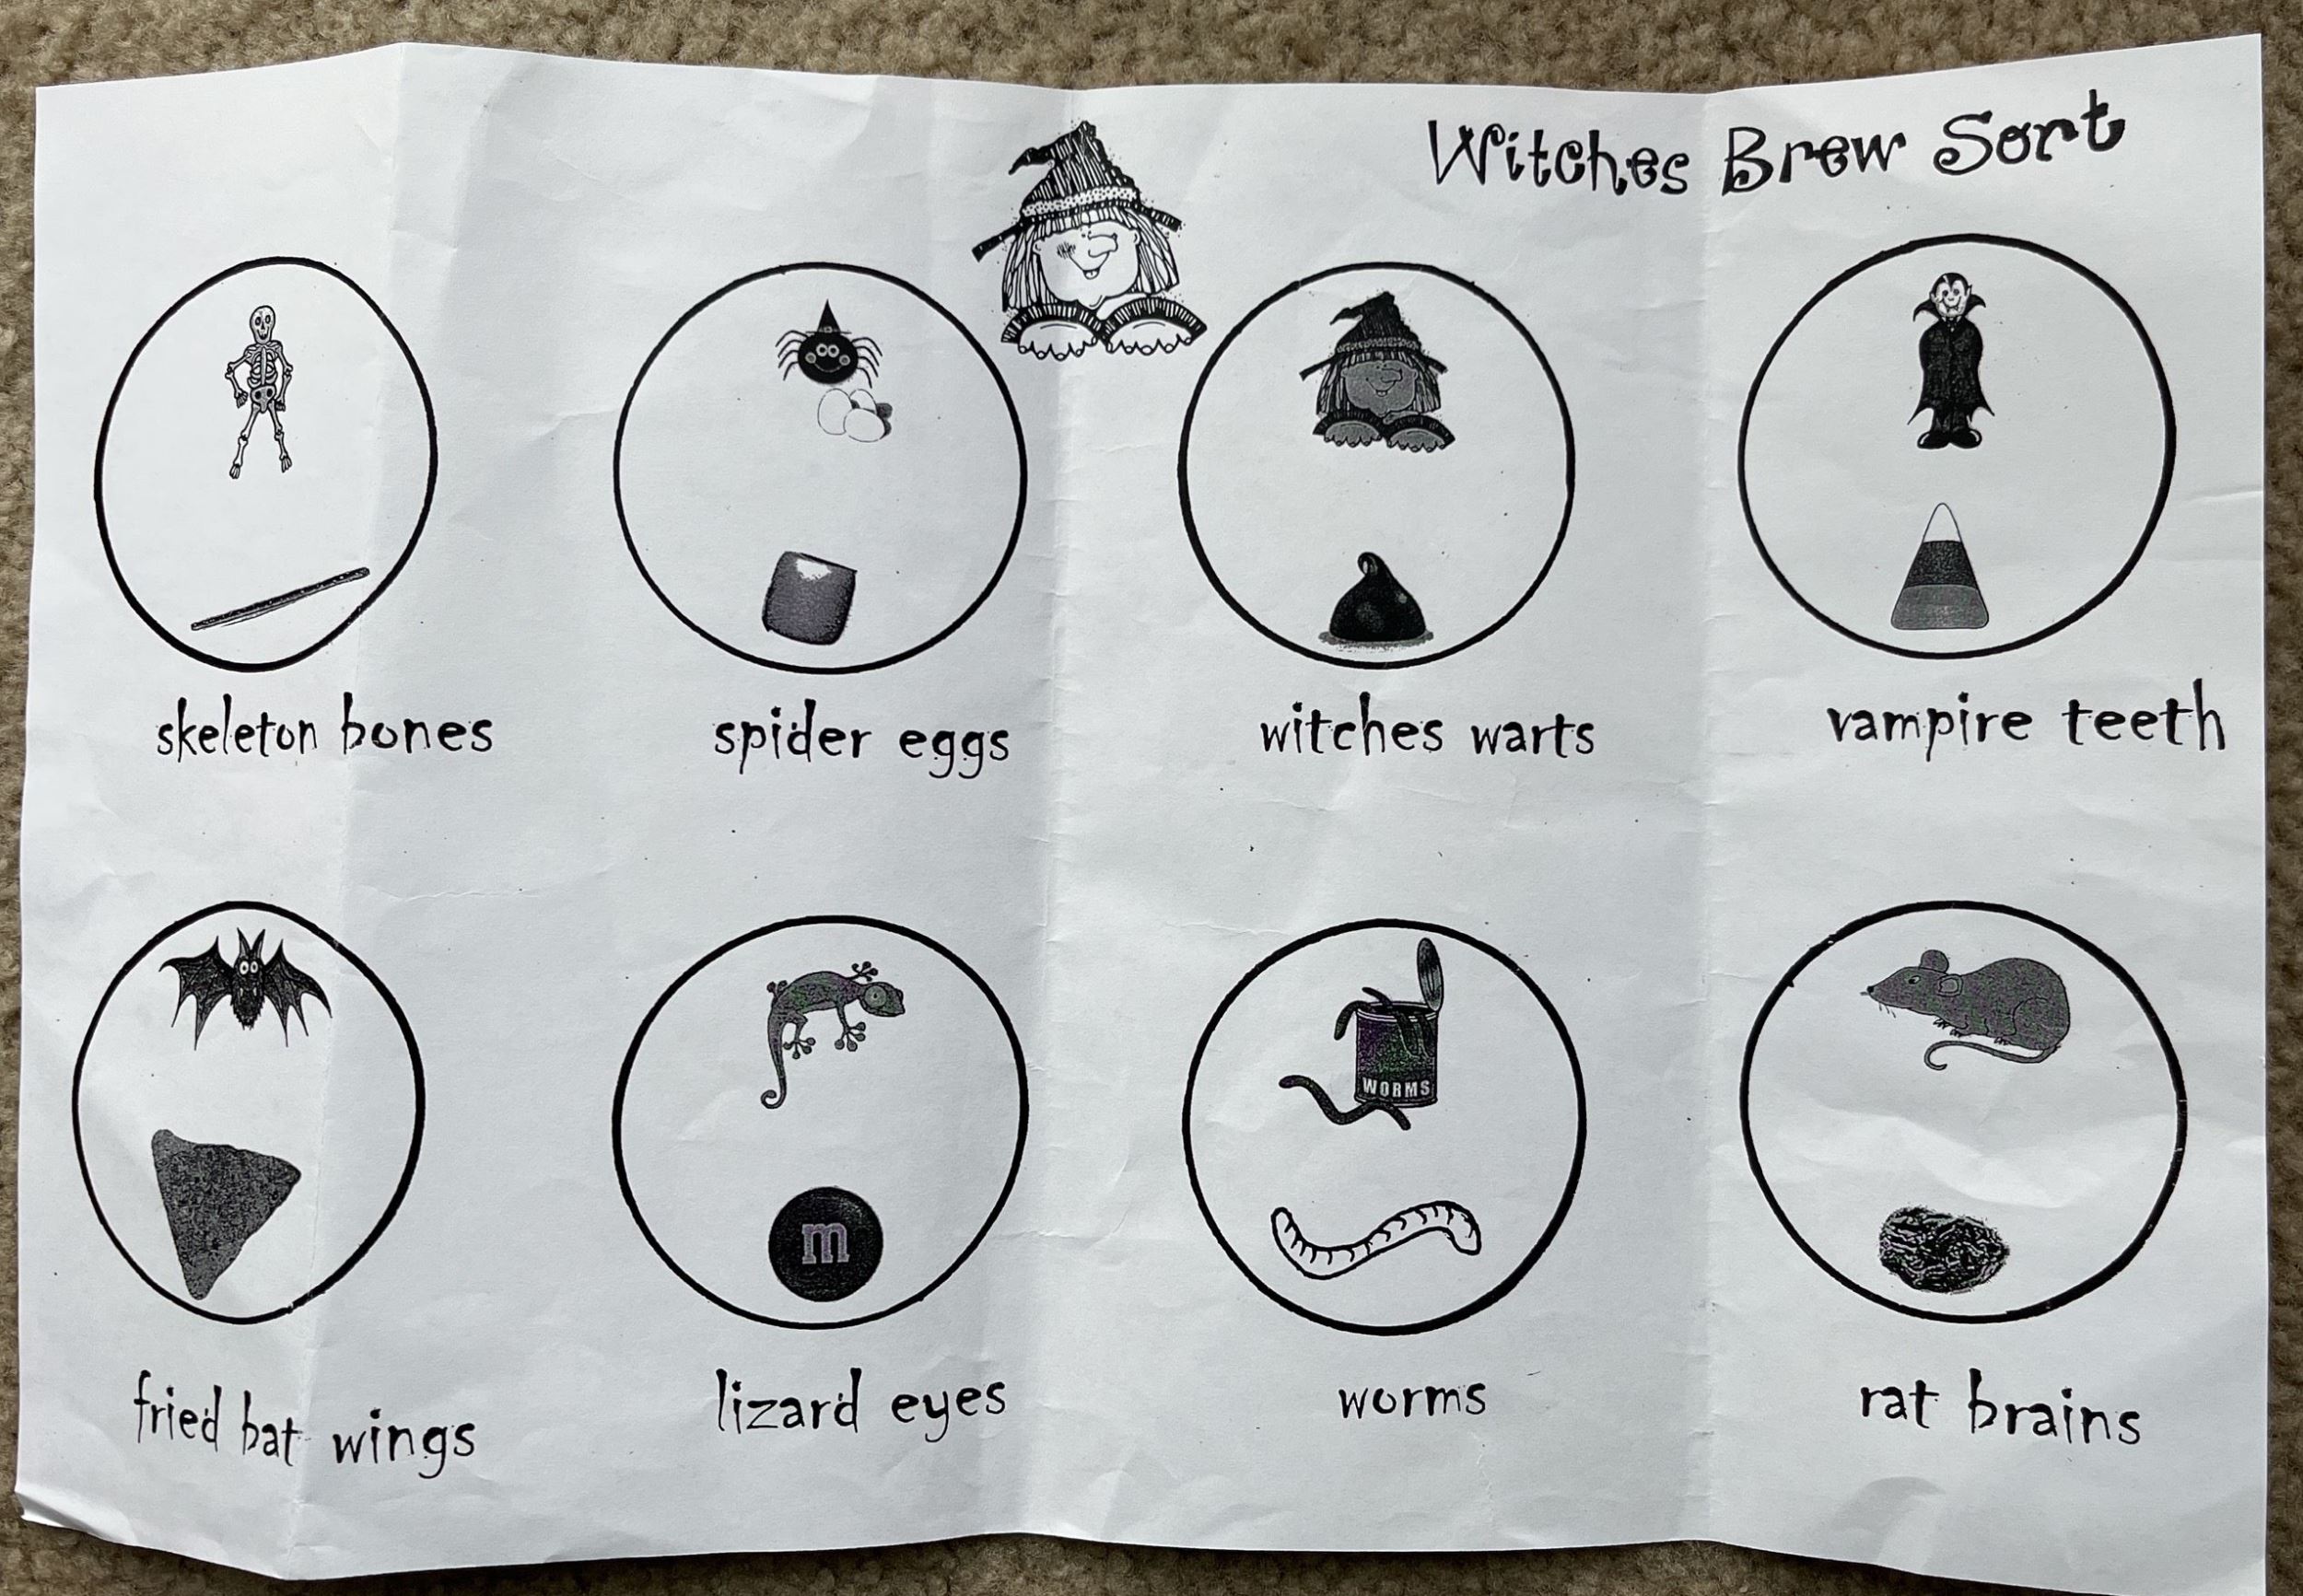 Witches Brew Sort
skeleton bones
spider eggs
witches warts
vampire teeth
m
WORMS
fried bat wings
lizard eyes
worms
rat brains